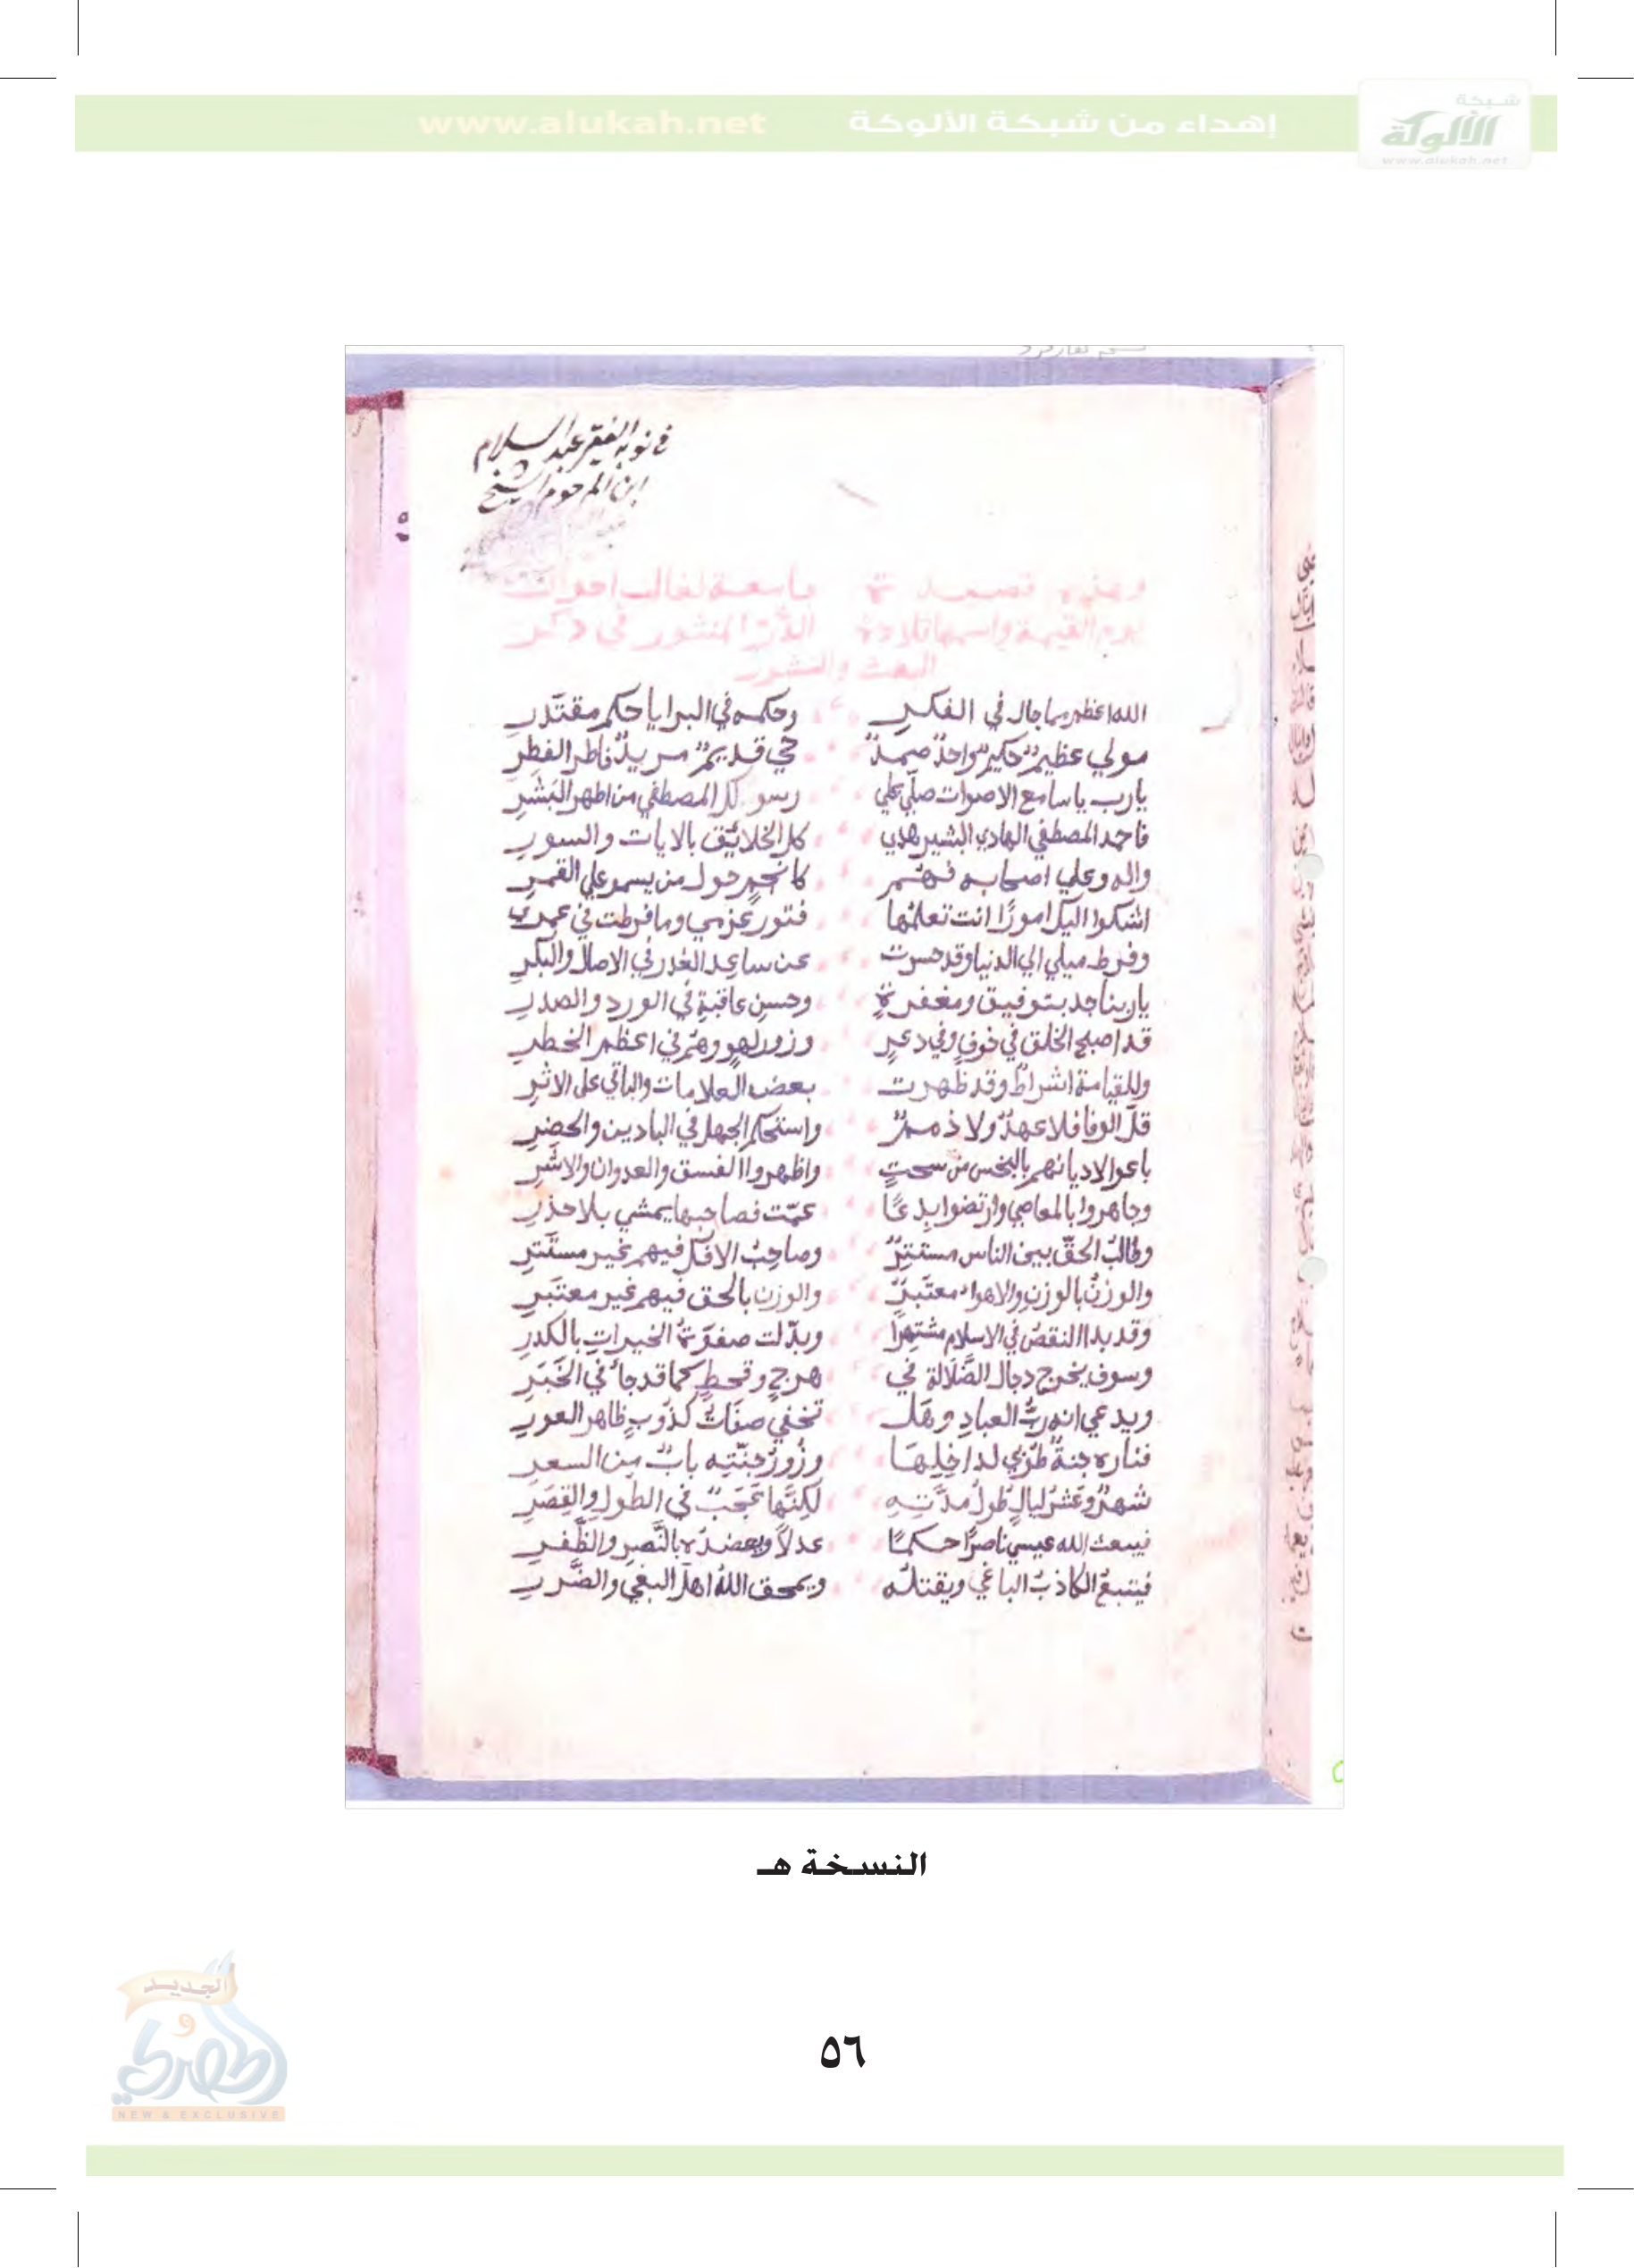 شبكة
الألوكة
www.alukah.net
إهداء من شبكة الألوكة www.alukah.net
في نوبة الفقير عبد السلام
ابن المرحوم الشيخ
وهذه قصيدة جامعة لغالب احوال
يوم القيمة واسمها قلادة الدر المنثور في ذكر
البعث والنشور
الله اعظم مما جال في الفكر وحكمه في البرايا حكم مقتدر
مولي عظيم حكيم واحد صمد حي قديم مريد فاطر الفطر
يارب يا سامع الاصوات صلي علي رسولك المصطفي من اطهر البشر
فاحمد المصطفي الهادي البشير هدي كل الخلائق بالايات والسور
واله وعلي اصحابه فهم كانجم حول من يسمو علي القمر
اشكوا اليك امورًا انت تعلمها فتور عزمي وما فرطت في عمري
وفرط ميلي الي الدنيا وقد حسرت عن ساعد الغدر في الاصال والبكر
ياربنا جد بتوفيق ومغفرة وحسن عاقبة في الورد والصدر
قد اصبح الخلق في خوف وفي دعر وزور لهو وهم في اعظم الخطر
وللقيامة اشراط وقد ظهرت بعض العلامات والباقي على الاثر
قل الوفا فلا عهد ولا ذمم واستحكم الجهل في البادين والحضر
باعوا لاديانهم بالبخس من سحت واظهروا الفسق والعدوان والاشر
وجاهروا بالمعاصي وارتضوا بدعًا عمّت فصاحبها يمشي بلا حذر
وطالب الحقّ بين الناس مستتر وصاحب الافك فيهم غير مستتر
والوزن بالوزن والاهواء معتبر والوزن بالحق فيهم غير معتبر
وقد بدا النقص في الاسلام مشتهرًا وبدّلت صفوة الخيرات بالكدر
وسوف يخرج دجال الضّلالة في هرج وقحط كما قد جاء في الخبر
ويدعي انه رب العباد وهل تخفي صفات كذوب ظاهر العور
فناره جنة طوبي لداخلها وزور جنّته باب من السعر
شهر وعشر ليال طول مدّته لكنّها عجب في الطول والقصر
فيبعث الله عيسي ناصرًا حكمًا عدلاً ويعضده بالنّصر والظّفر
فيتبع الكاذب الباغي ويقتله ويمحق الله اهل البغي والضّرر
النسخة هـ
الجديد
و
المصري
NEW & EXCLUSIVE
٥٦